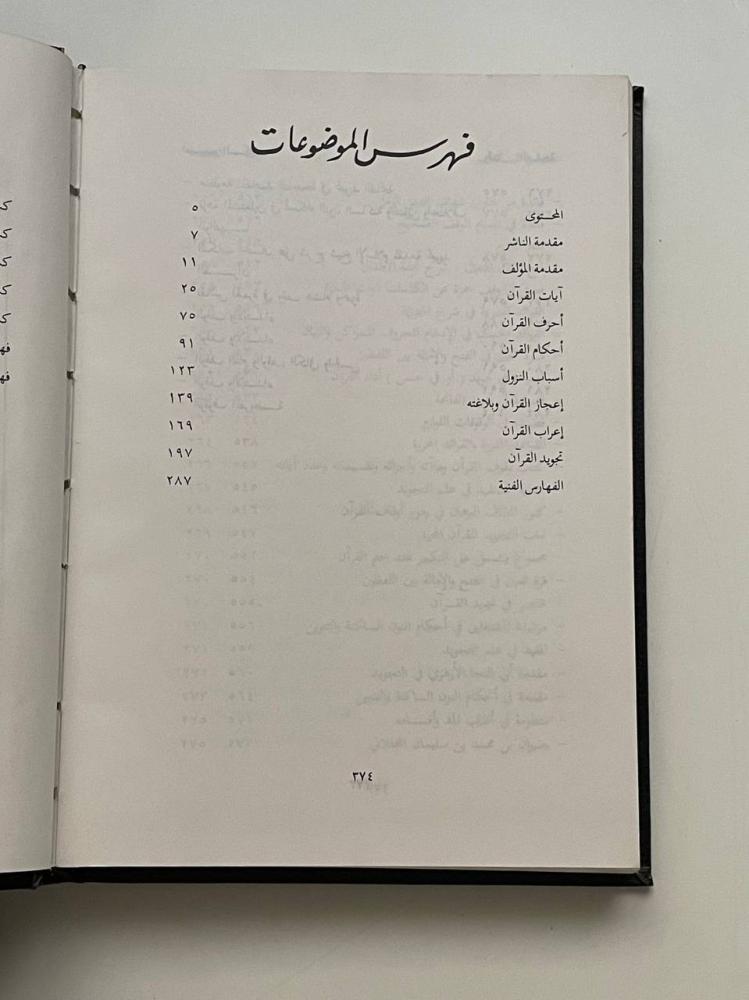 فهرس الموضوعات
المحتوى ٥
مقدمة الناشر ٧
مقدمة المؤلف ١١
آيات القرآن ٢٥
أحرف القرآن ٧٥
أحكام القرآن ٩١
أسباب النزول ١٢٣
إعجاز القرآن وبلاغته ١٣٩
إعراب القرآن ١٦٩
تجويد القرآن ١٩٧
الفهارس الفنية ٢٨٧
٣٧٤